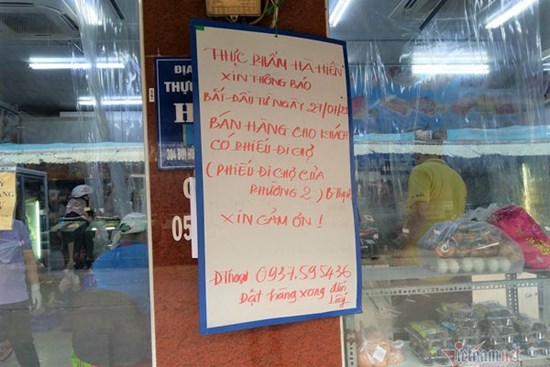 THỰC PHẨM HÀ HIỀN
XIN THÔNG BÁO
BẮT ĐẦU TỪ NGÀY 27/07/21
BÁN HÀNG CHO KHÁCH
CÓ PHIẾU ĐI CHỢ
( PHIẾU ĐI CHỢ CỦA
PHƯỜNG 2 )
XIN CẢM ƠN !
ĐThoại 0937.595436
Đặt hàng xong đến
lấy
ĐỊA
THỰ
H
304 BÙI H
05
vietnamnet